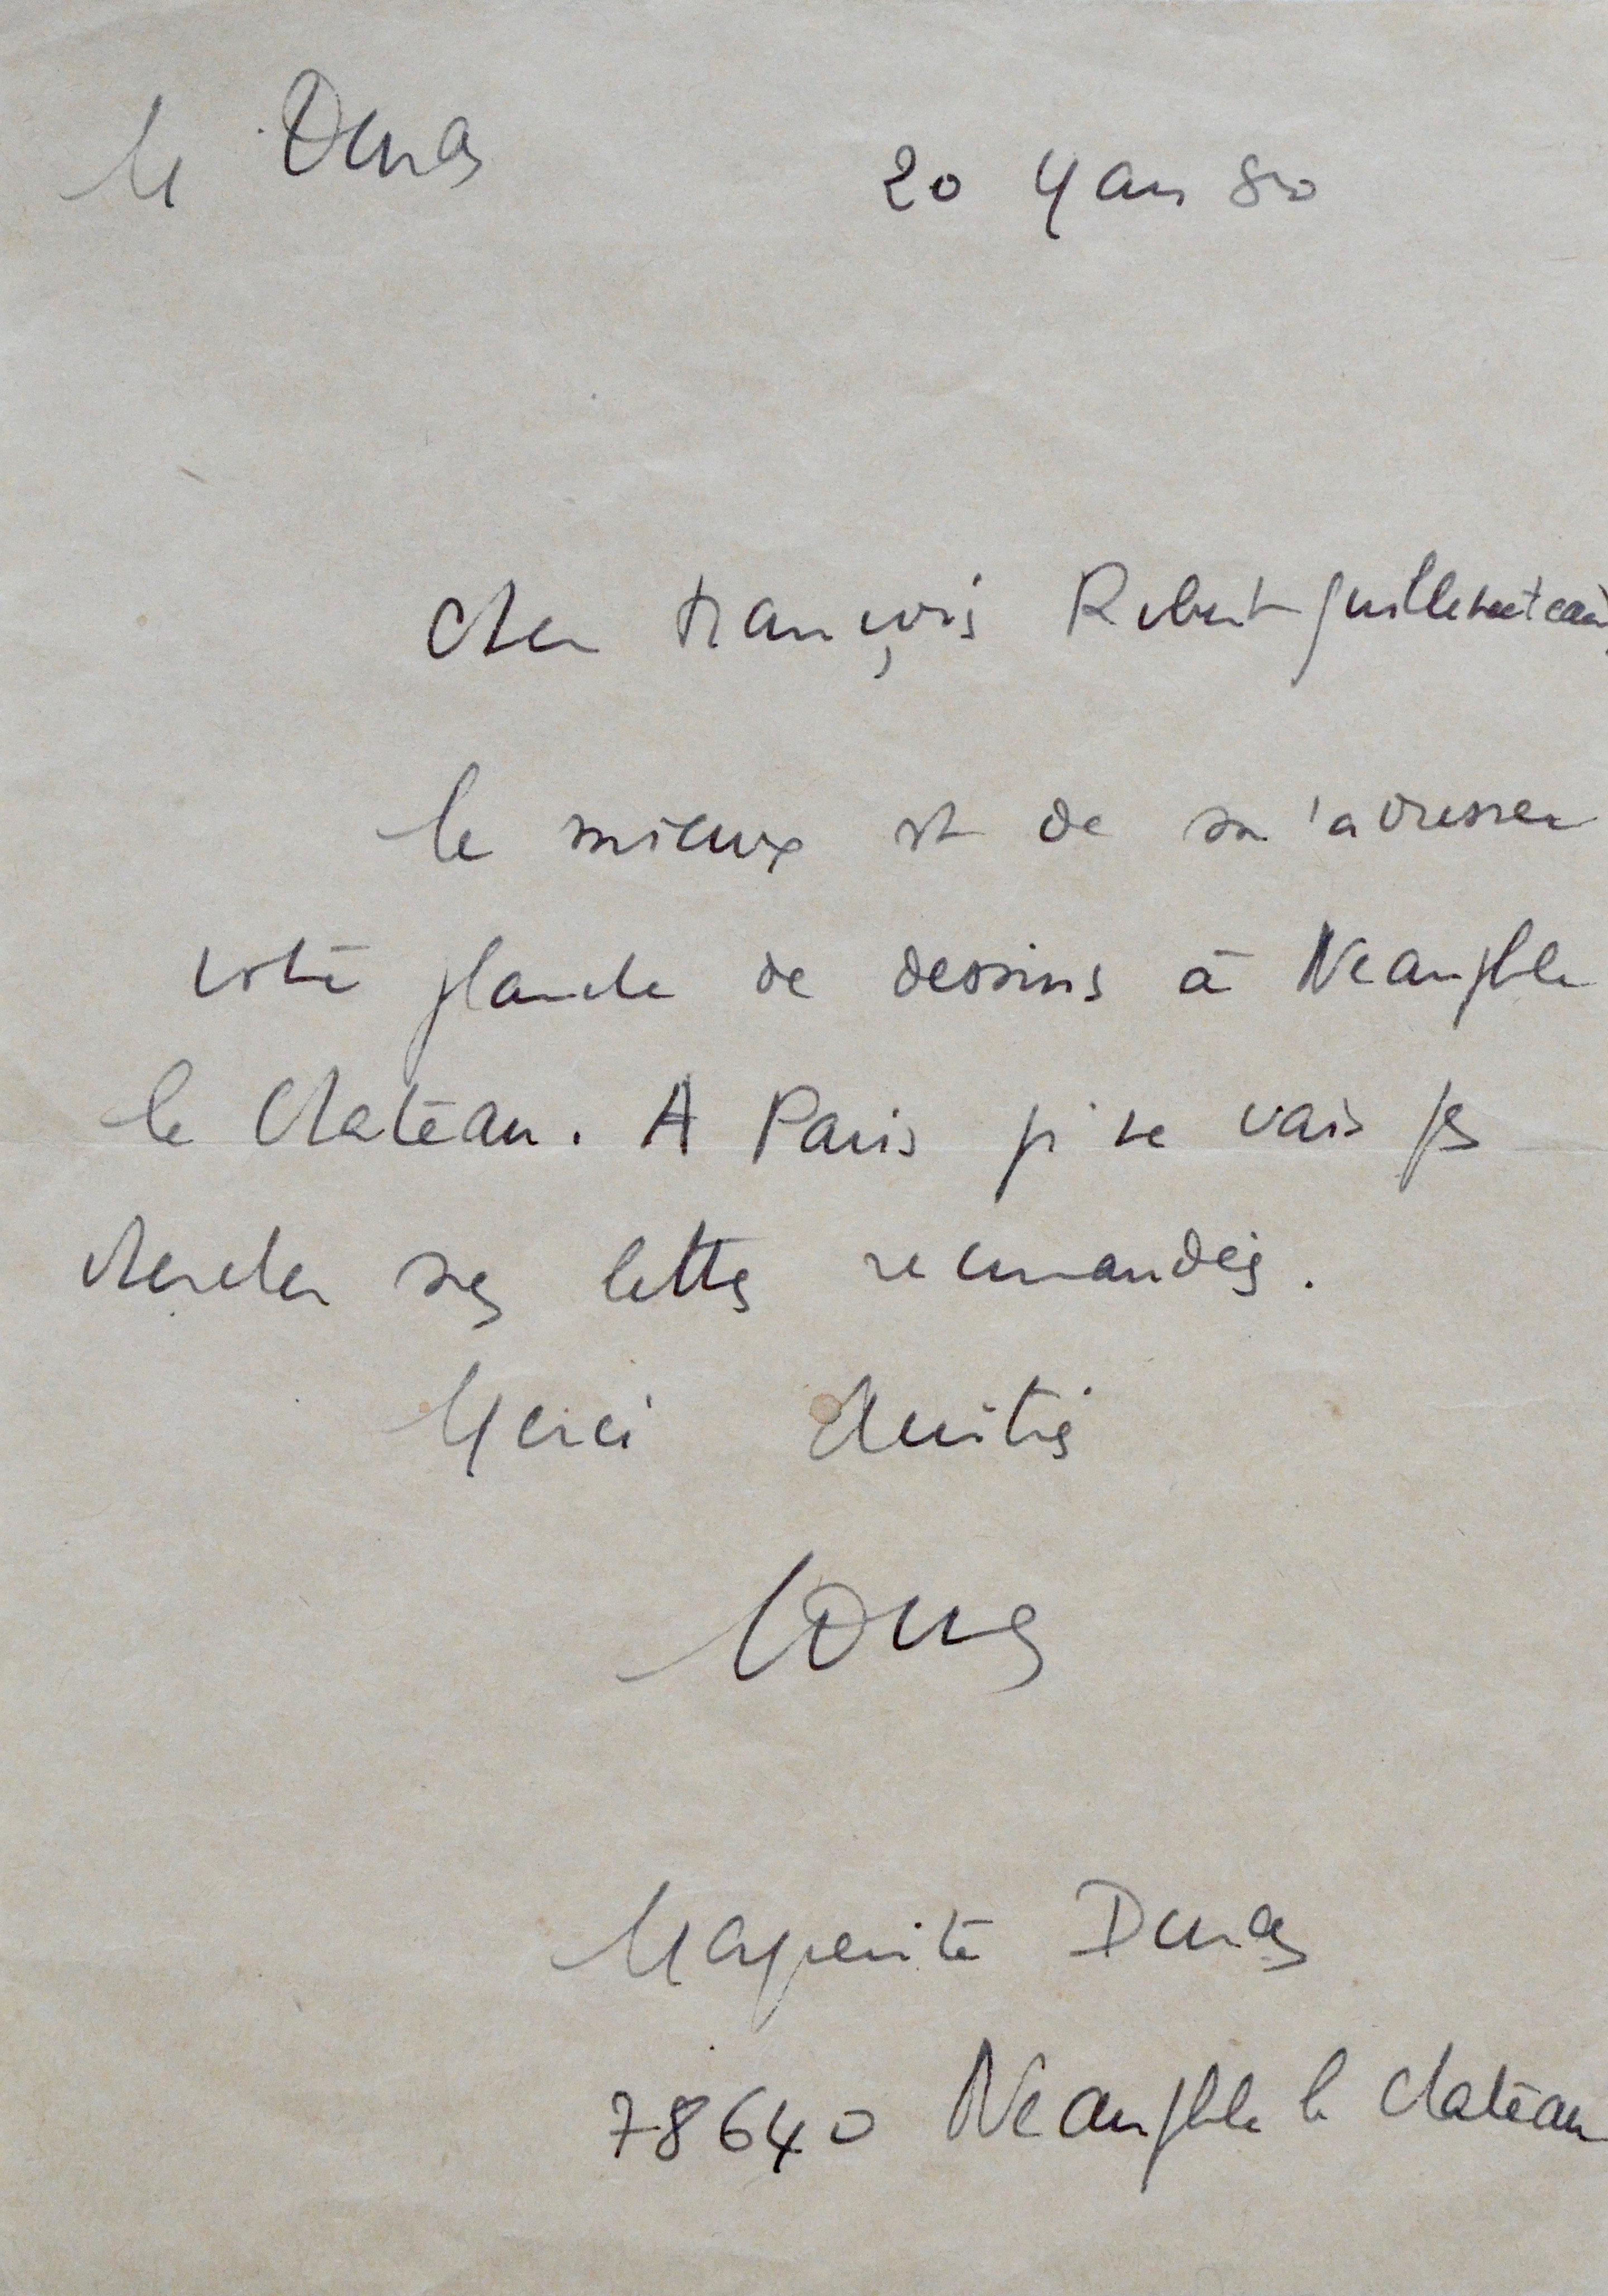 M Duras 20 Mars 80
Cher François Robert Guilleteau,
le mieux est de m'adresser
votre planche de dessins à Neauphle
le Chateau. A Paris je ne vais pas
chercher mes lettres recommandées.
Merci Amitiés
MDuras
Marguerite Duras
78640 Neauphle le Chateau